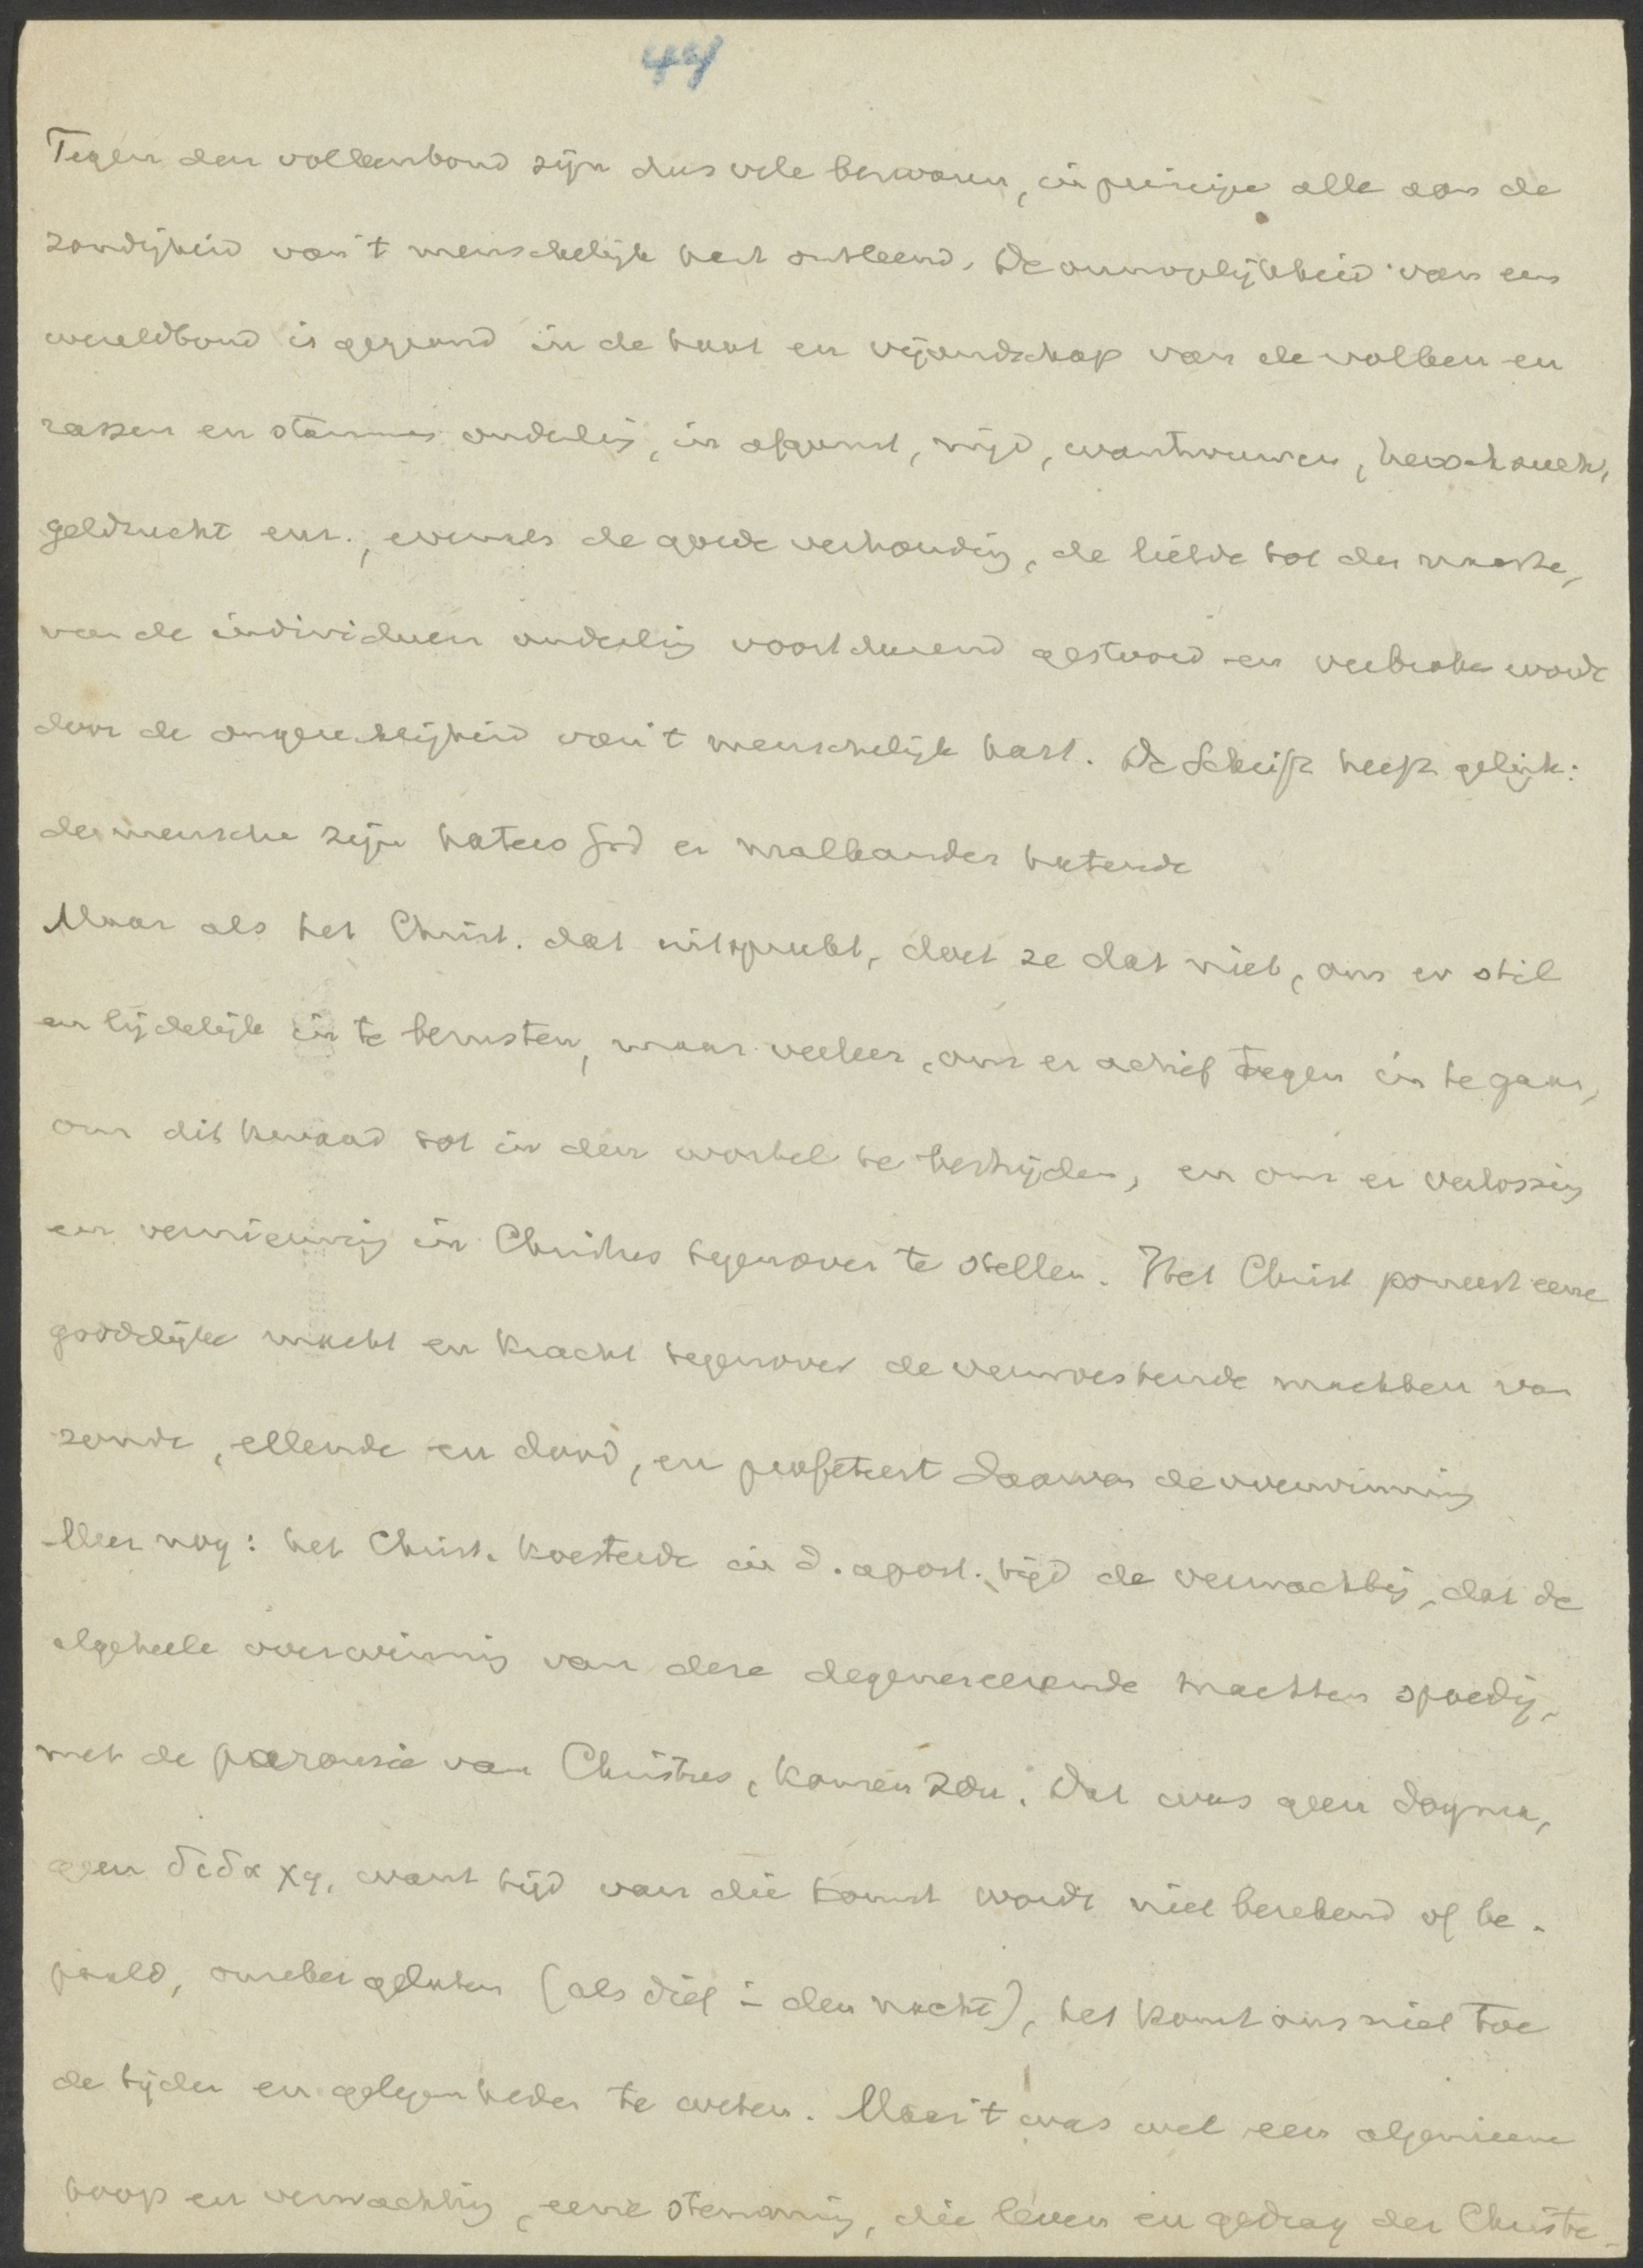 44
Tegen den volkenbond zijn dus vele bezwaren, in principe alle aan de
zondigheid van 't menschelijk hart ontleend. De onmogelijkheid van een
wereldbond is gegrond in de haat en vijandschap van de volken en
rassen en stammen onderling, in afgunst, nijd, wantrouwen, heerschzucht,
geldzucht enz., evenals de goede verhouding, de liefde tot den naaste,
van de individuen onderling voortdurend gestoord en verbroken wordt
door de ongerechtigheid van 't menschelijk hart. De Schrift heeft gelijk:
de menschen zijn haters God en malkander hatende
Maar als het Christ. dat uitspreekt, doet ze dat niet, om er stil
en lijdelijk in te berusten, maar veeleer, om er actief tegen in te gaan,
om dit kwaad tot in den wortel te bestrijden, en om er verlossing
en vernieuwing in Christus tegenover te stellen. Het Christ poneert eene
goddelijke macht en kracht tegenover de verwoestende machten van
zonde, ellende en dood, en profeteert daarvan de overwinning
Meer nog: het Christ. koesterde in d. apost. tijd de verwachting, dat de
algeheele overwinning van deze degenereerende machten spoedig,
met de parousie van Christus, komen zou. Dat was geen dogma,
geen διδαχη, want tijd van die komst wordt niet berekend of be-
paald, onzeker gelaten (als dief in den nacht), het komt ons niet toe
de tijden en gelegenheden te weten. Maar 't was wel een algemeene
hoop en verwachting, eene stemming, die leven en gedrag der Christe-